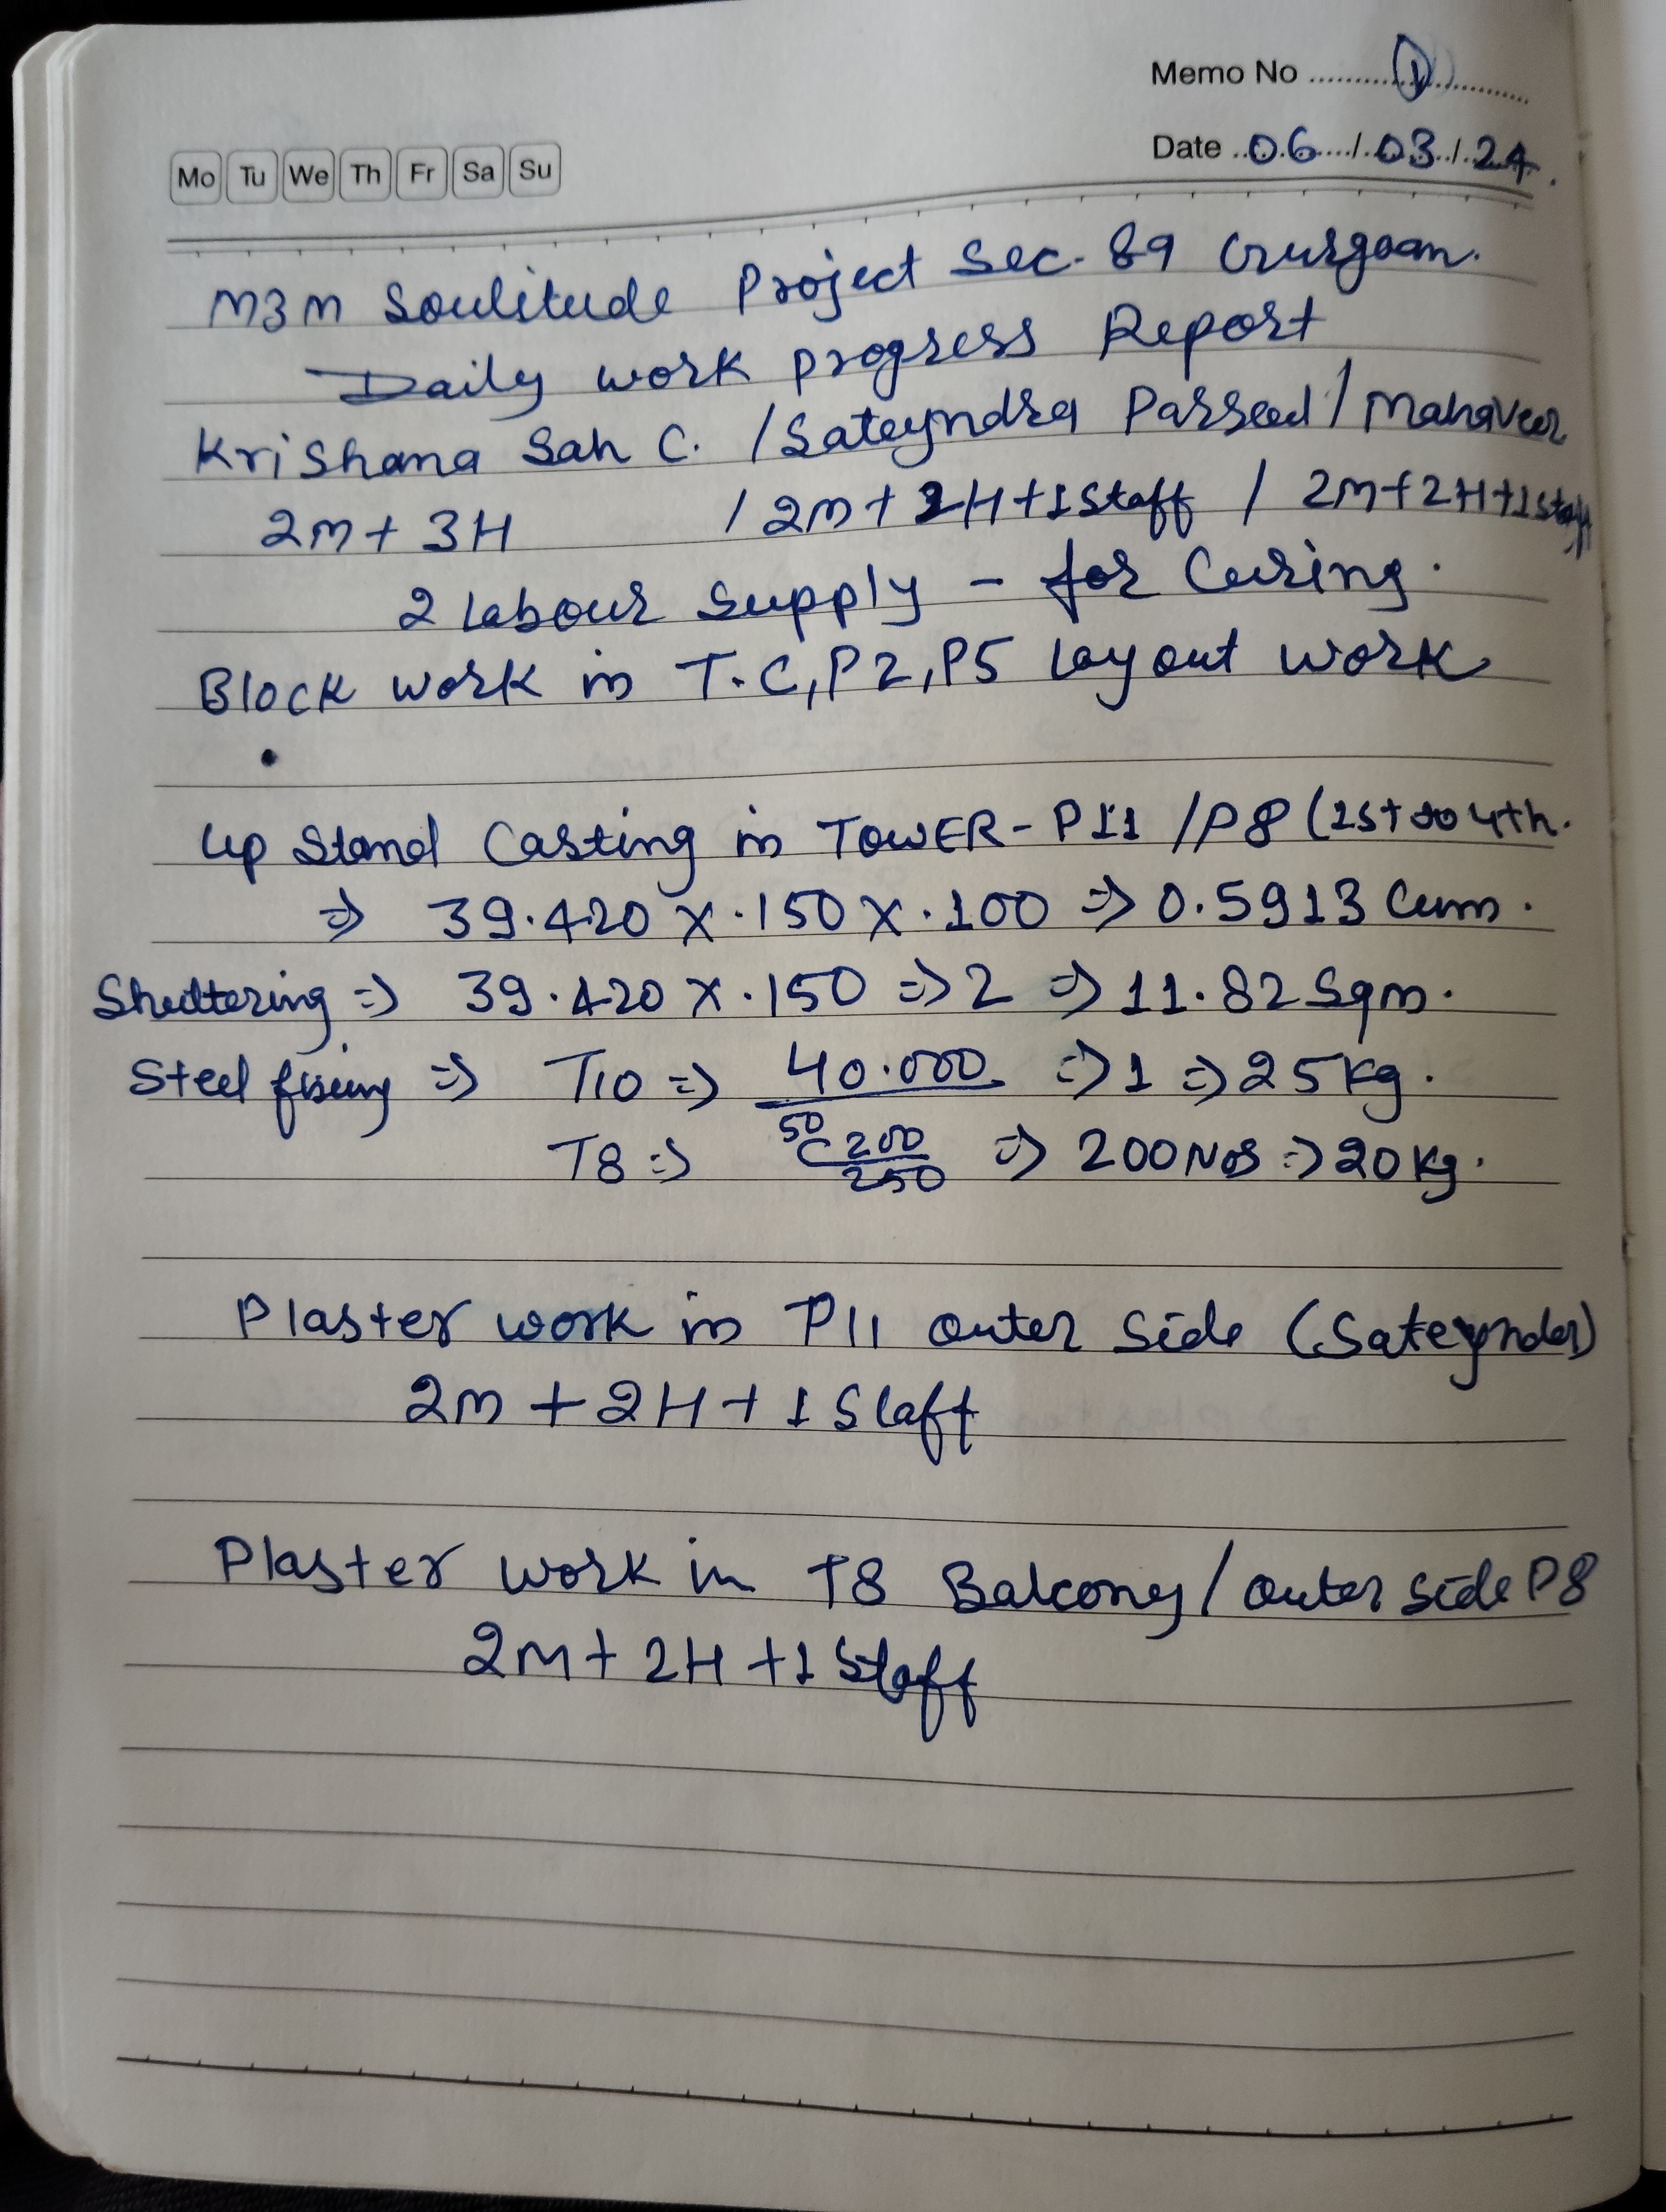 Memo No ........ 1 ........
Date .. 06 ..../. 03 ../. 24 .
Mo Tu We Th Fr Sa Su
M3M Soulitude Project Sec. 89 Gurgaon.
Daily work progress Report
Krishana Sah C. / Sateyndra Parsead / Mahaveer
2M + 3H / 2M + 2H + 1 Staff / 2M + 2H + 1 Staff
2 Labour Supply - for Curing.
Block work in T.C, P2, P5 Layout work
Up Stand Casting in TOWER - P11 / P8 (1st to 4th.
⇒ 39.420 x .150 x .100 ⇒ 0.5913 Cum.
Shuttering ⇒ 39.420 x .150 ⇒ 2 ⇒ 11.82 Sqm.
Steel fixing ⇒ T10 ⇒ 40.000 ⇒ 1 ⇒ 25 Kg.
T8 ⇒ 50 C 200/250 ⇒ 200 Nos ⇒ 20 Kg.
Plaster work in P11 outer Side (Sateynder)
2M + 2H + 1 Staff
Plaster work in T8 Balcony / outer side P8
2M + 2H + 1 Staff